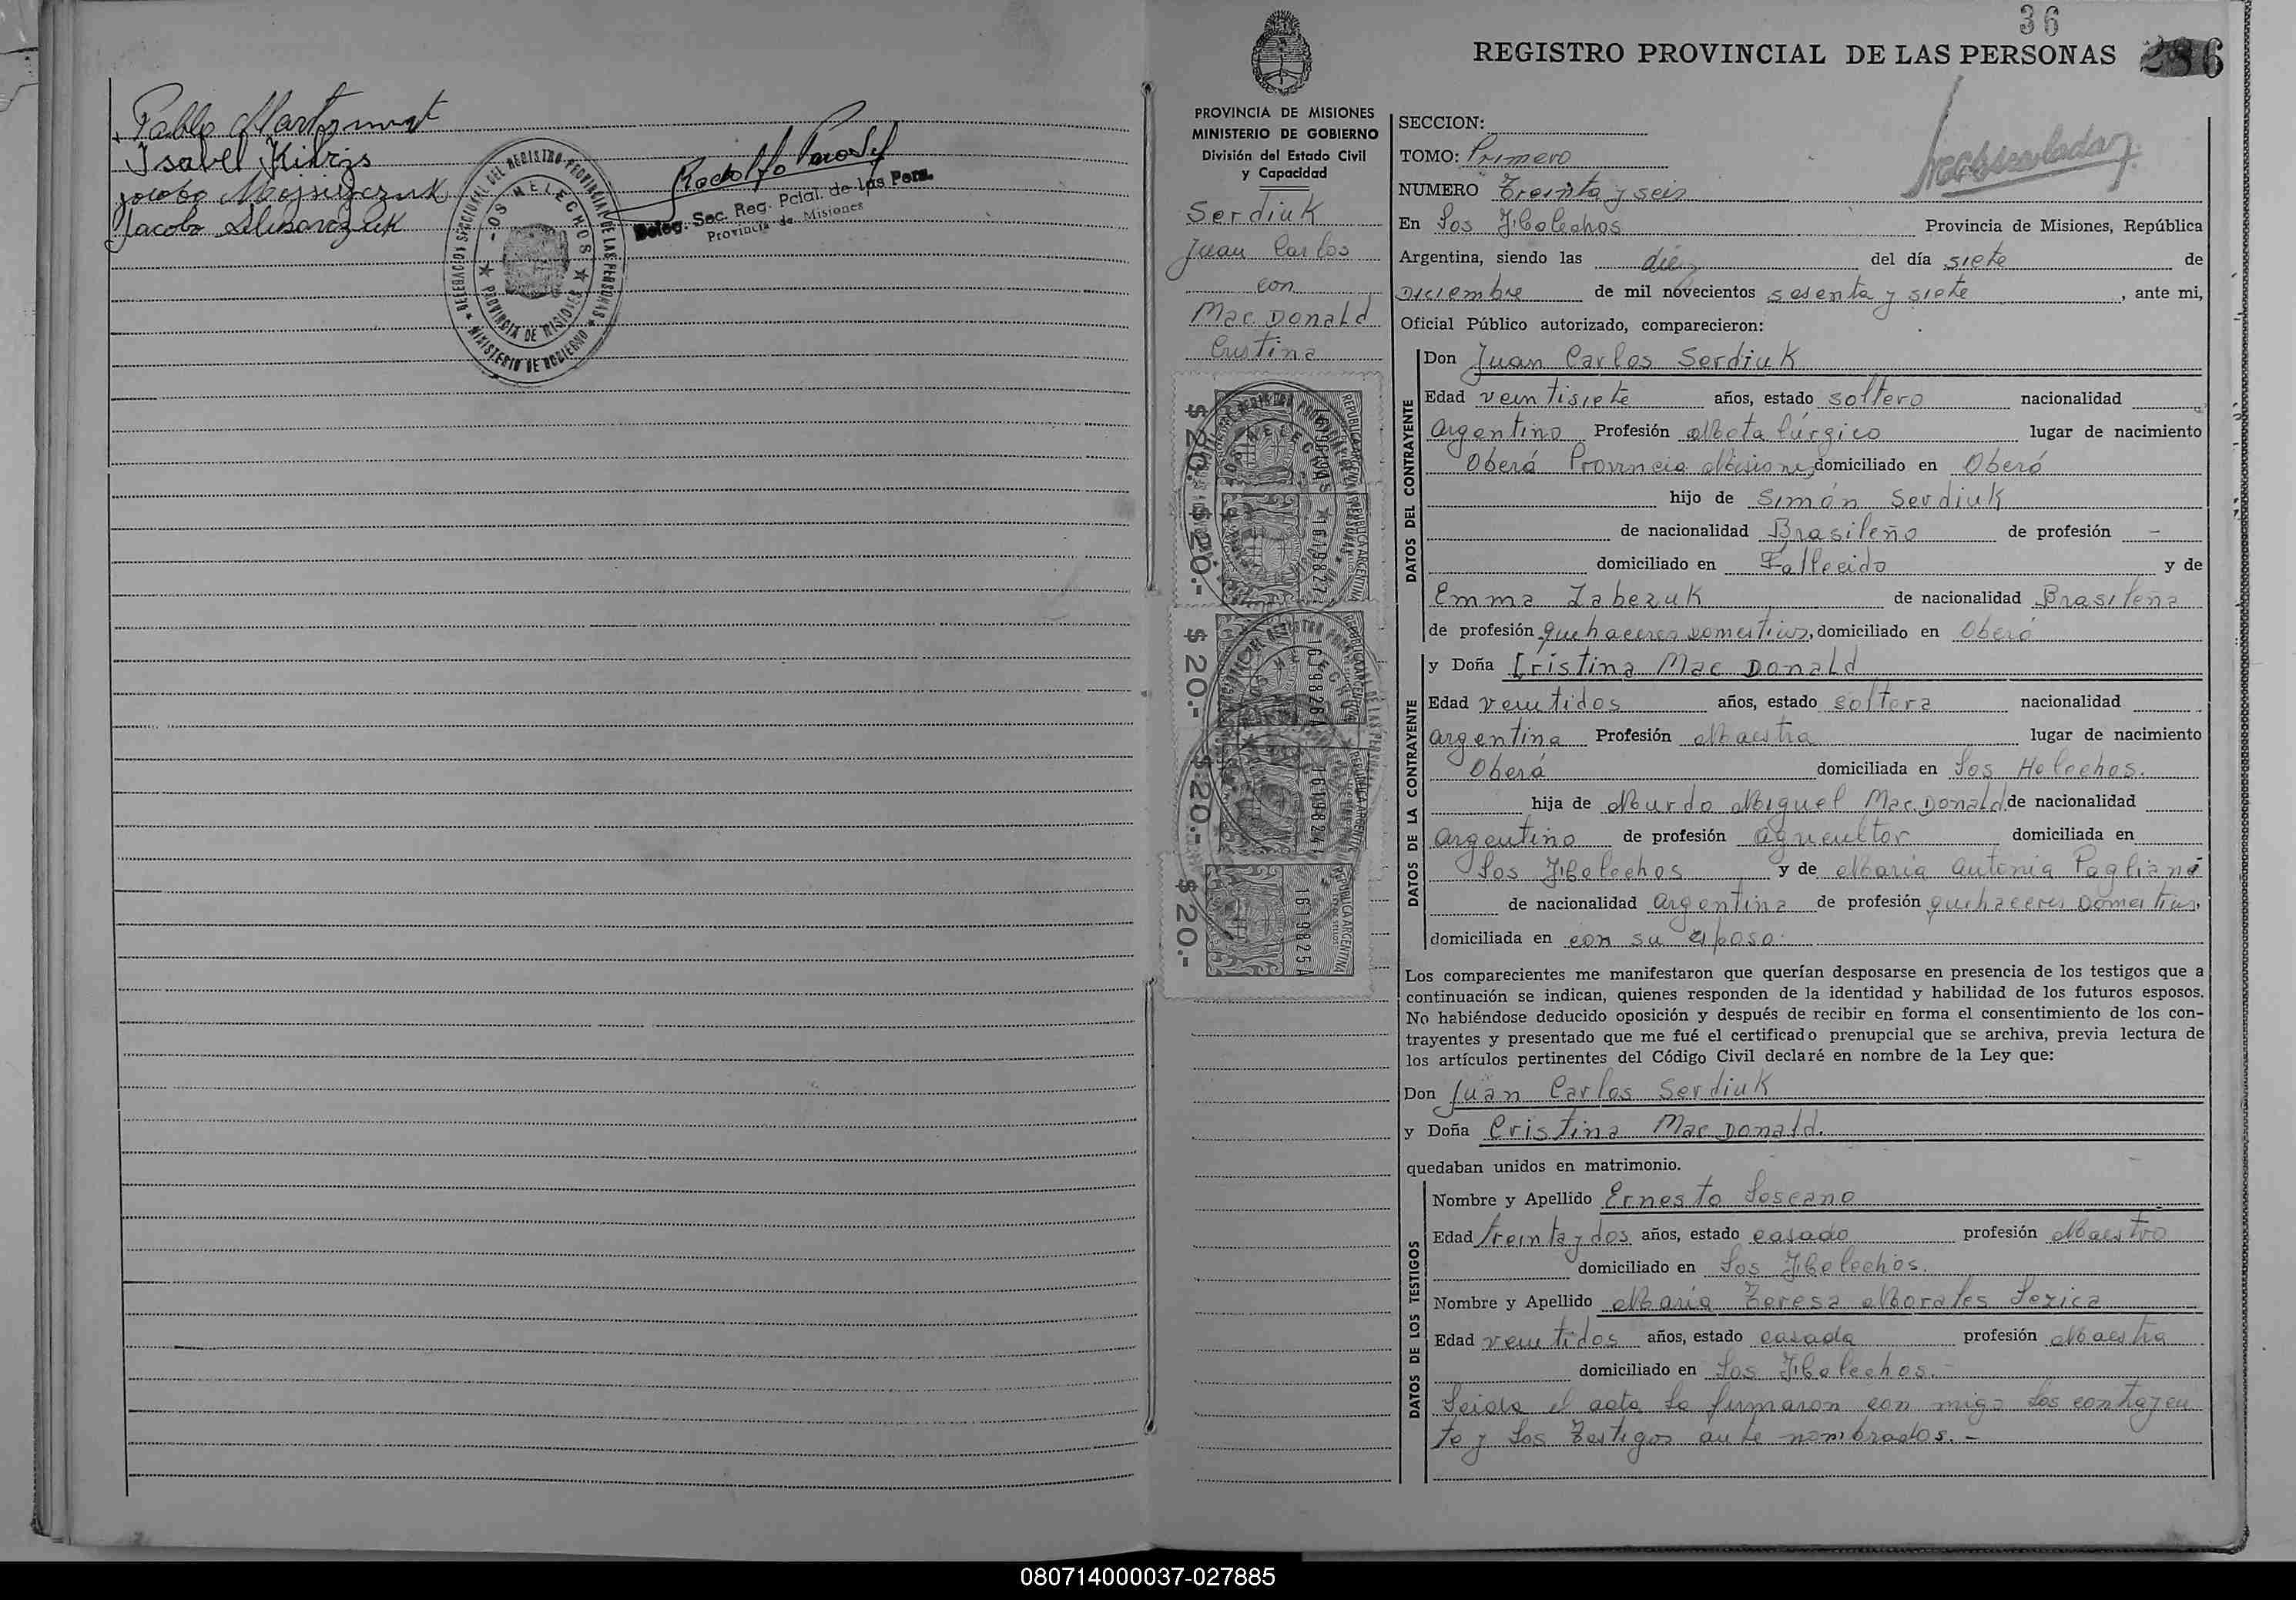 Pablo
Isabel
Jacobo
DELEGACION SECCIONAL DEL REGISTRO PROVINCIAL DE LAS PERSONAS
MINISTERIO DE GOBIERNO
LOS HELECHOS
PROVINCIA DE MISIONES
Rodolfo
Deleg. Sec. Reg. Pcial. de las Pers.
Provincia de Misiones
36
REGISTRO PROVINCIAL DE LAS PERSONAS
PROVINCIA DE MISIONES
MINISTERIO DE GOBIERNO
División del Estado Civil
y Capacidad
Serdiuk
Juan Carlos
con
Mac Donald
Cristina
$ 20.-
$ 20.-
$ 20.-
$ 20.-
REPUBLICA ARGENTINA
1619827
1619826
1619824
1619825 A
SECCION:
TOMO: Primero
NUMERO Treinta y seis
En Los Helechos Provincia de Misiones, República
Argentina, siendo las diez del día siete de
Diciembre de mil novecientos sesenta y siete, ante mi,
Oficial Público autorizado, comparecieron:
DATOS DEL CONTRAYENTE
Don Juan Carlos Serdiuk
Edad veintisiete años, estado soltero nacionalidad
argentino Profesión Metalúrgico lugar de nacimiento
Oberá Provincia Misiones, domiciliado en Oberá
hijo de Simón Serdiuk
de nacionalidad Brasileño de profesión -
domiciliado en Fallecido y de
Emma Zabezuk de nacionalidad Brasileña
de profesión quehaceres domesticos, domiciliado en Oberá
DATOS DE LA CONTRAYENTE
y Doña Cristina Mac Donald
Edad veintidos años, estado soltera nacionalidad
argentina Profesión Maestra lugar de nacimiento
Oberá domiciliada en Los Helechos.
hija de Murdo Miguel Mac Donald de nacionalidad
argentino de profesión agricultor domiciliada en
Los Helechos y de María Antonia
de nacionalidad argentina de profesión quehaceres domesticos,
domiciliada en con su esposo.
Los comparecientes me manifestaron que querían desposarse en presencia de los testigos que a
continuación se indican, quienes responden de la identidad y habilidad de los futuros esposos.
No habiéndose deducido oposición y después de recibir en forma el consentimiento de los con-
trayentes y presentado que me fué el certificado prenupcial que se archiva, previa lectura de
los artículos pertinentes del Código Civil declaré en nombre de la Ley que:
Don Juan Carlos Serdiuk
y Doña Cristina Mac Donald.
quedaban unidos en matrimonio.
DATOS DE LOS TESTIGOS
Nombre y Apellido Ernesto Loscano
Edad treinta y dos años, estado casado profesión Maestro
domiciliado en Los Helechos.
Nombre y Apellido María Teresa Morales Lezica
Edad veintidos años, estado casada profesión Maestra
domiciliado en Los Helechos.-
Leida el acta la firmaron con migo los contrayen
te y los testigos ante nombrados.-
080714000037-027885